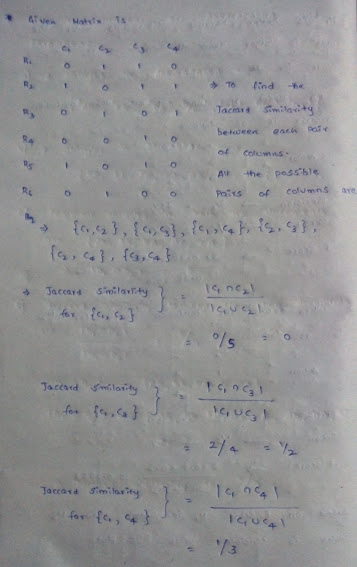 * Given Matrix is
C1 C2 C3 C4
R1 0 1 1 0
R2 1 0 1 1
R3 0 1 0 1
R4 0 0 1 0
R5 1 0 1 0
R6 0 1 0 0
⇒ To find the
Jaccard similarity
between each pair
of columns.
All the possible
pairs of columns are
⇒ {C1,C2}, {C1,C3}, {C1,C4}, {C2,C3},
{C2,C4}, {C3,C4}
⇒ Jaccard similarity for {C1,C2} } = |C1∩C2| / |C1∪C2|
= 0/5 = 0
Jaccard similarity for {C1,C3} } = |C1∩C3| / |C1∪C3|
= 2/4 = 1/2
Jaccard similarity for {C1,C4} } = |C1∩C4| / |C1∪C4|
= 1/3